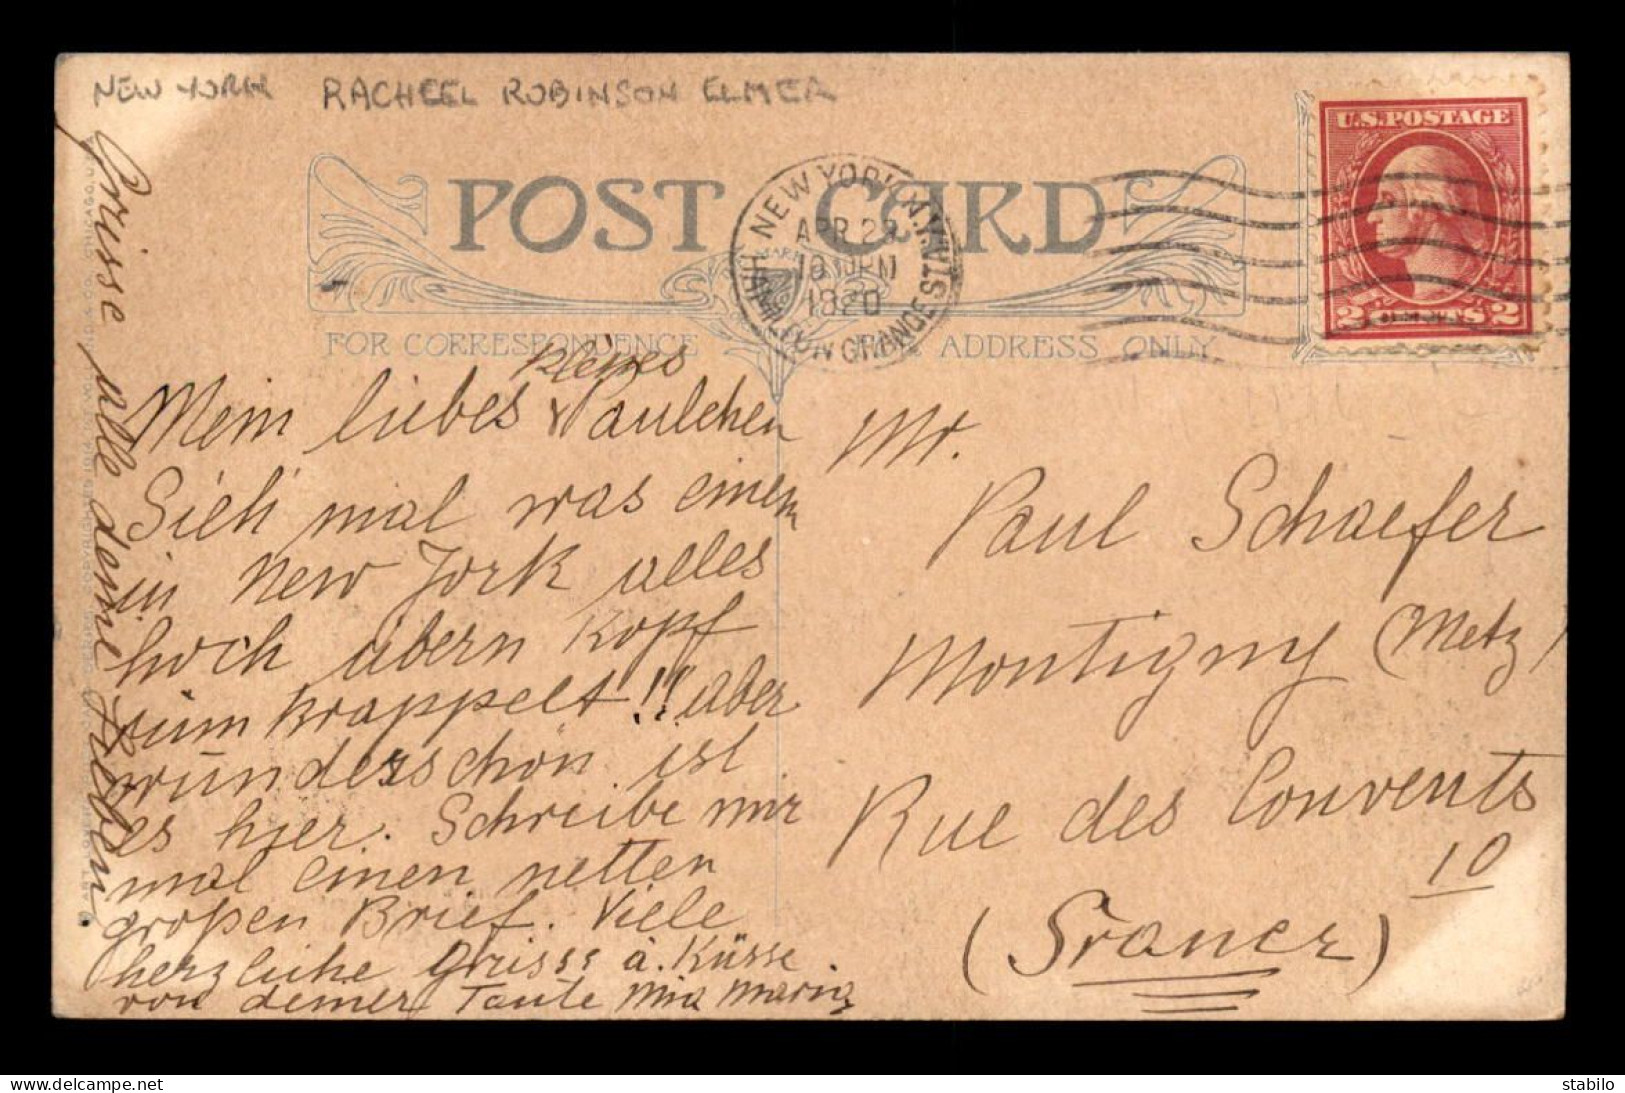 NEW YORK RACHEEL ROBINSON ELMER
POST CARD
FOR CORRESPONDENCE
ADDRESS ONLY
NEW YORK, N.Y.
APR 23
10 PM
1920
HAMILTON GRANGE STA.
U.S. POSTAGE
2 CENTS 2
kleines
Mein liebes Paulchen
Sieh mal was einem
in New York alles
hoch übern Kopf
rum krappelt!! aber
wunderschön ist
es hier. Schreibe mir
mal einen netten
großen Brief. Viele
herzliche Grüsse u. Küsse
von deiner Tante Mia Maria
Grüsse alle deine Lieben
Mr.
Paul Schaefer
Montigny (Metz)
Rue des Convents
10
(France)
stabilo